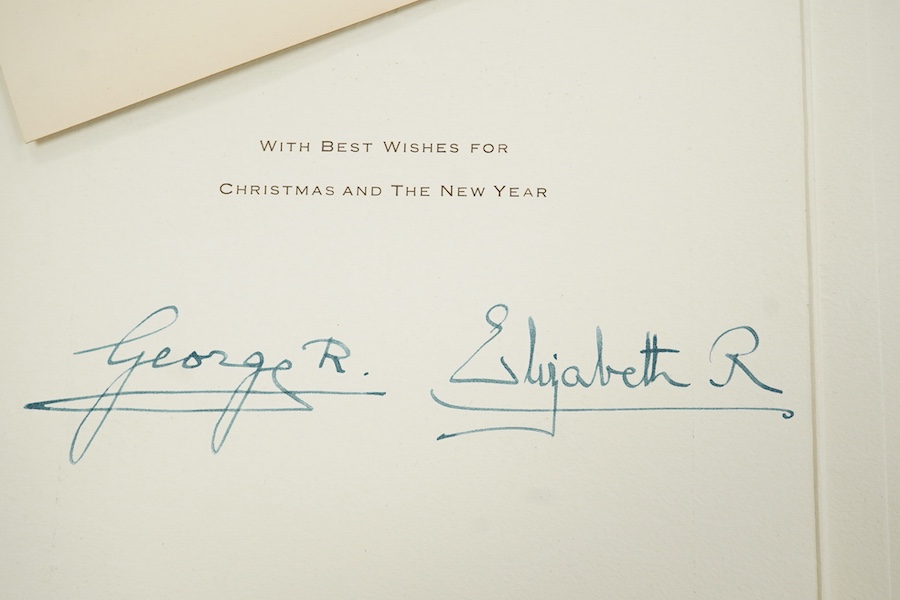 With Best Wishes for
Christmas and The New Year
George R. Elizabeth R